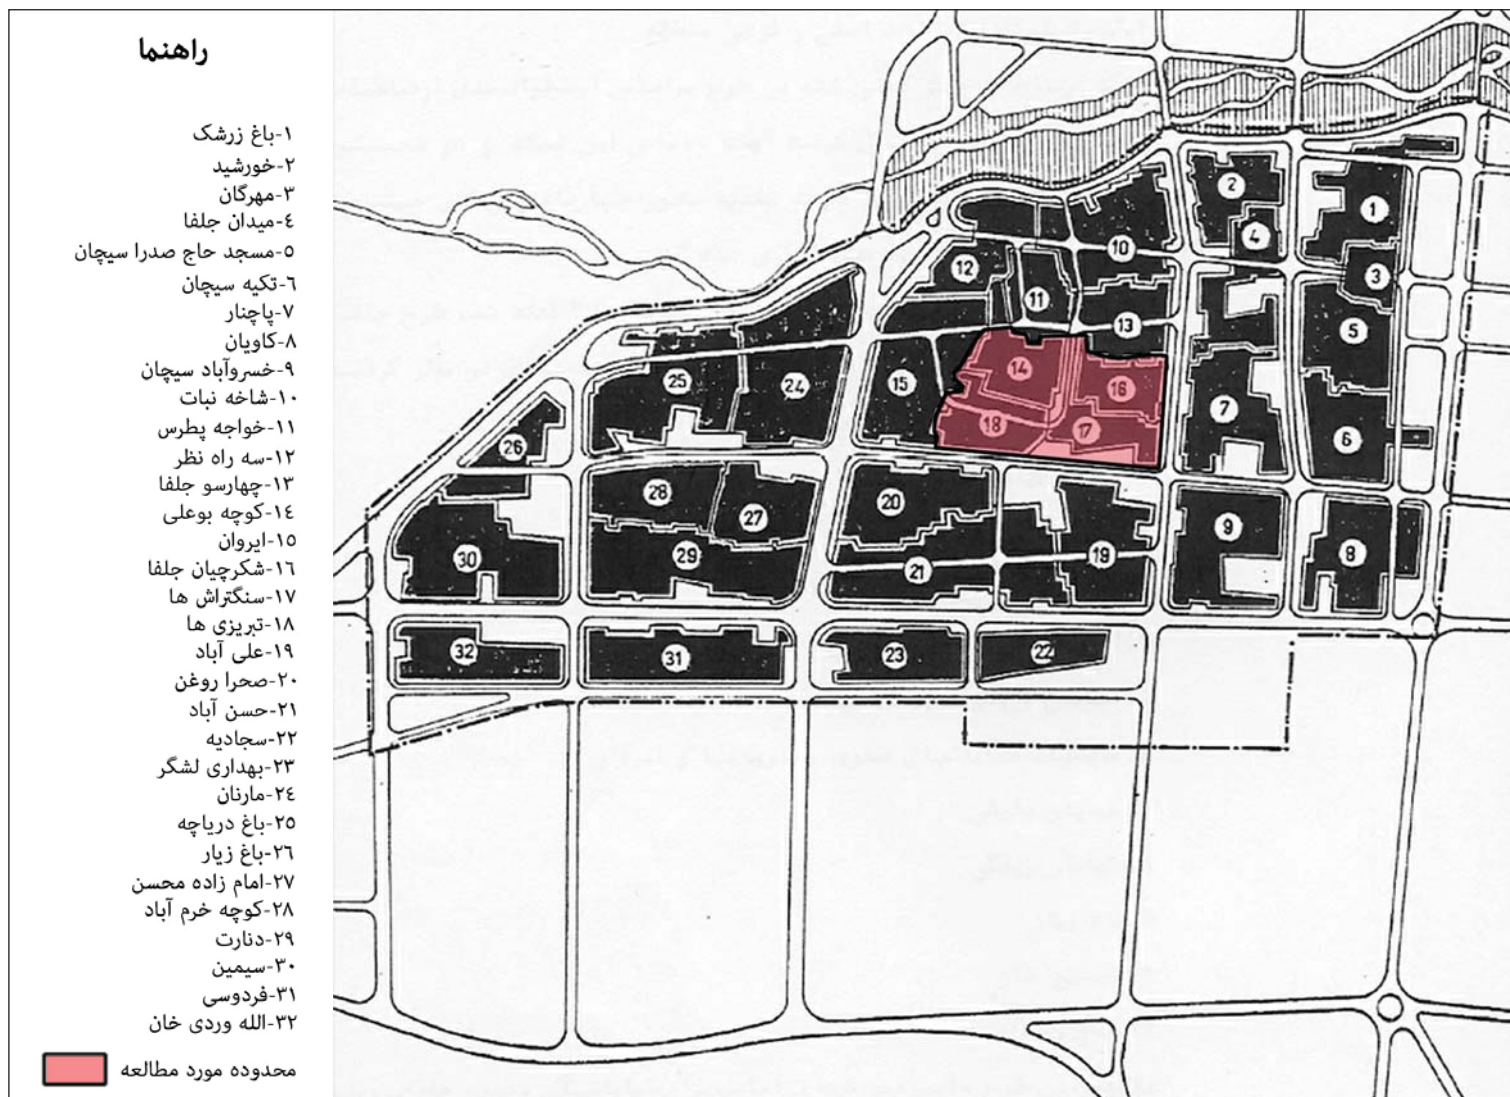 راهنما
١-باغ زرشک
٢-خورشید
٣-مهرگان
٤-میدان جلفا
٥-مسجد حاج صدرا سیچان
٦-تکیه سیچان
٧-پاچنار
٨-کاویان
٩-خسروآباد سیچان
١٠-شاخه نبات
١١-خواجه پطرس
١٢-سه راه نظر
١٣-چهارسو جلفا
١٤-کوچه بوعلی
١٥-ایروان
١٦-شکرچیان جلفا
١٧-سنگتراش ها
١٨-تبریزی ها
١٩-علی آباد
٢٠-صحرا روغن
٢١-حسن آباد
٢٢-سجادیه
٢٣-بهداری لشگر
٢٤-مارنان
٢٥-باغ دریاچه
٢٦-باغ زیار
٢٧-امام زاده محسن
٢٨-کوچه خرم آباد
٢٩-دنارت
٣٠-سیمین
٣١-فردوسی
٣٢-الله وردی خان
محدوده مورد مطالعه
2
1
4
10
3
12
11
13
5
14
25
24
15
16
7
18
17
6
26
28
20
27
9
8
29
30
21
19
32
31
23
22